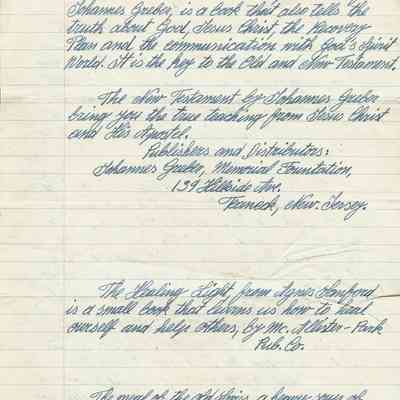 Johannes Greber, is a book that also tells the
truth about God, Jesus Christ, the Recovery
Plan and the communication with God's Spirit
World. It is the key to the Old and New Testament.
The New Testament by Johannes Greber
bring you the true teaching from Jesus Christ
and His Apostel.
Publishers and Distributors:
Johannes Greber, Memorial Fountation,
139 Hillside Av.
Teaneck, New. Jersey.
The Healing Light from Agnes Sanford
is a small book that learns us how to heal
ourself and help others, by Mc. Allister-Park
Pub. Co.
The meal of the old